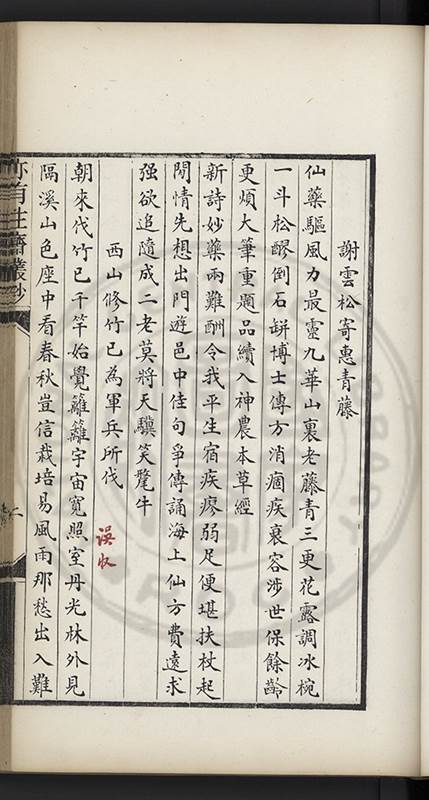 謝雲松寄惠青藤
仙藥驅風力最靈九華山裏老藤青三更花露調冰椀
一斗松醪倒石缾博士傳方消痼疾衰容涉世保餘齡
更煩大筆重題品續入神農本草經
新詩妙藥兩難酬令我平生宿疾瘳弱足便堪扶杖起
閒情先想出門遊邑中佳句爭傳誦海上仙方費遠求
强欲追隨成二老莫將天驥笑氂牛
西山修竹已為軍兵所伐
誤收
朝來伐竹已千竿始覺籬籬宇宙寬照室丹光林外見
隔溪山色座中看春秋豈信栽培易風雨那愁出入難
亦有生齋叢鈔